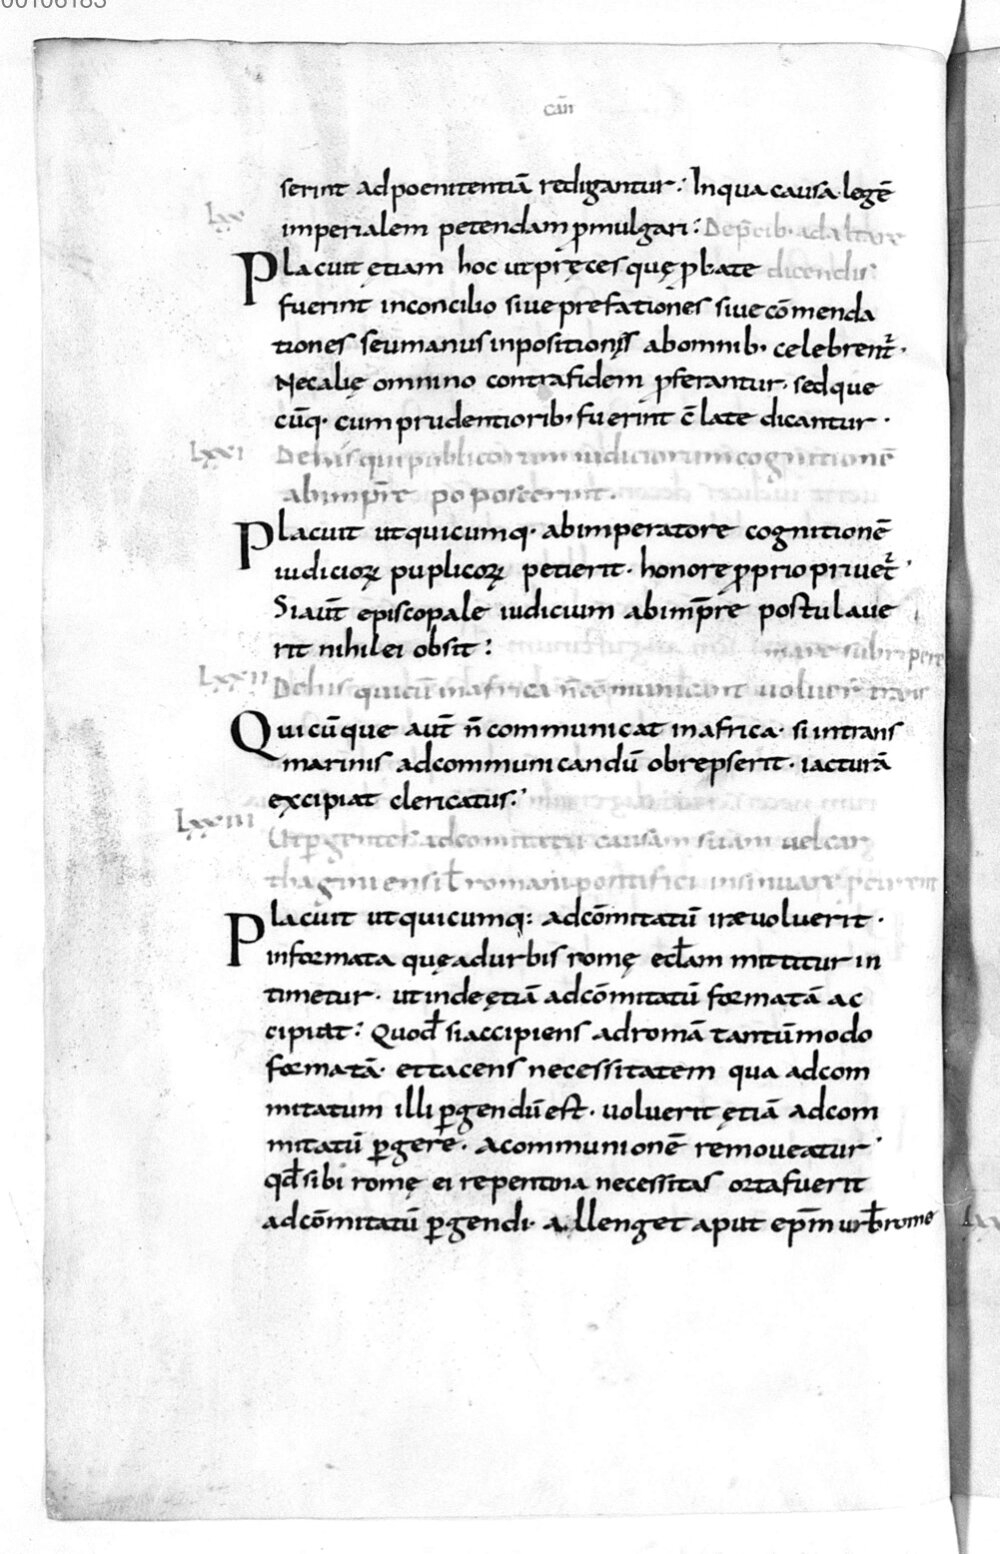 00106183
cañ
serint adpoenitentiā redigantur: Inqua causa legē
lxx imperialem petendam ꝓmulgari: Dep̄cib· adaltare
Placuit etiam hoc utpręces quę ꝓbate dicendis:
fuerint inconcilio siue prefationes siue cōmenda
tiones seumanus inpositionis abomnib· celebrent̄·
Necalię omnino contrafidem ꝓferantur· sedque
cūq· cum prudentiorib· fuerint c̄late dicantur·
lxxi Dehis qui publicorum iudiciorum cognitionē
abimp̄re poposcerint·
Placuit utquicumq· abimperatore cognitionē
iudicioꝝ puplicoꝝ petierit· honore ꝓprio priuet̄·
Siaut̄ episcopale iudicium abimp̄re postulaue
rit nihil ei obsit:
mare subripere
lxxii Dehis quicū inafrica n̄ cōmunicant uoluer̄ trans
Quicūque aut̄ n̄ communicat inafrica· si intrans
marinis adcommunicandū obrepserit· iacturā
excipiat clericatus:
lxxiii Ut ꝑgentes adcomitatū causam suam uelcar
thaginiensi ł romano pontifici insinuare
Placuit utquicumq: adcōmitatū iræ uoluerit·
informata quę adurbis romę ecl̄am mittitur in
timetur· ut inde ętiā adcōmitatū formatā ac
cipiat: Quod̄ siaccipiens adromā tantūmodo
formatā· et tacens necessitatem qua adcom
mitatum illi ꝑgendū est· uoluerit ętiā adcom
mitatū ꝑgere· acommunionē remoueatur·
qd̄ sibi romę ei repentina necessitas orta fuerit
adcōmitatū ꝑgendi· allenget aput ep̄m urb̄ rome